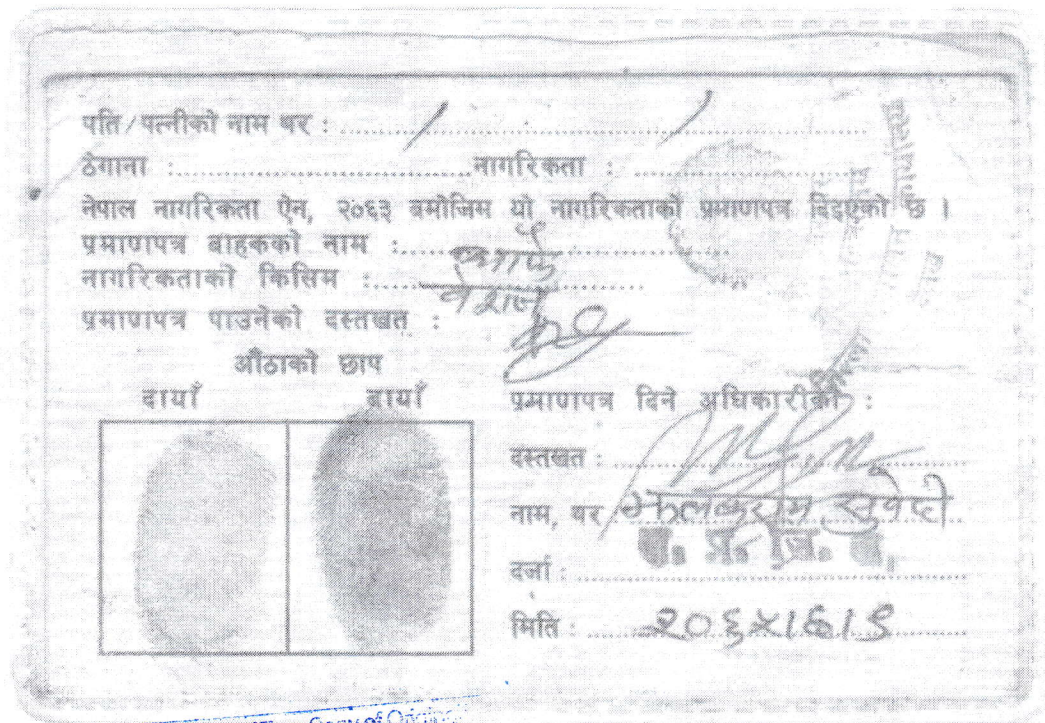 पति/पत्नीको नाम थर : / /
ठेगाना : नागरिकता :
नेपाल नागरिकता ऐन, २०६३ बमोजिम यो नागरिकताको प्रमाणपत्र दिइएको छ ।
प्रमाणपत्र बाहकको नाम : आफै
नागरिकताको किसिम : वंशज
प्रमाणपत्र पाउनेको दस्तखत :
औंठाको छाप
दायाँ बायाँ
प्रमाणपत्र दिने अधिकारीको :
दस्तखत :
नाम, थर : झलकराम
दर्जा : प्र. जि. अ.
मिति : २०६५।६।९
Copy of